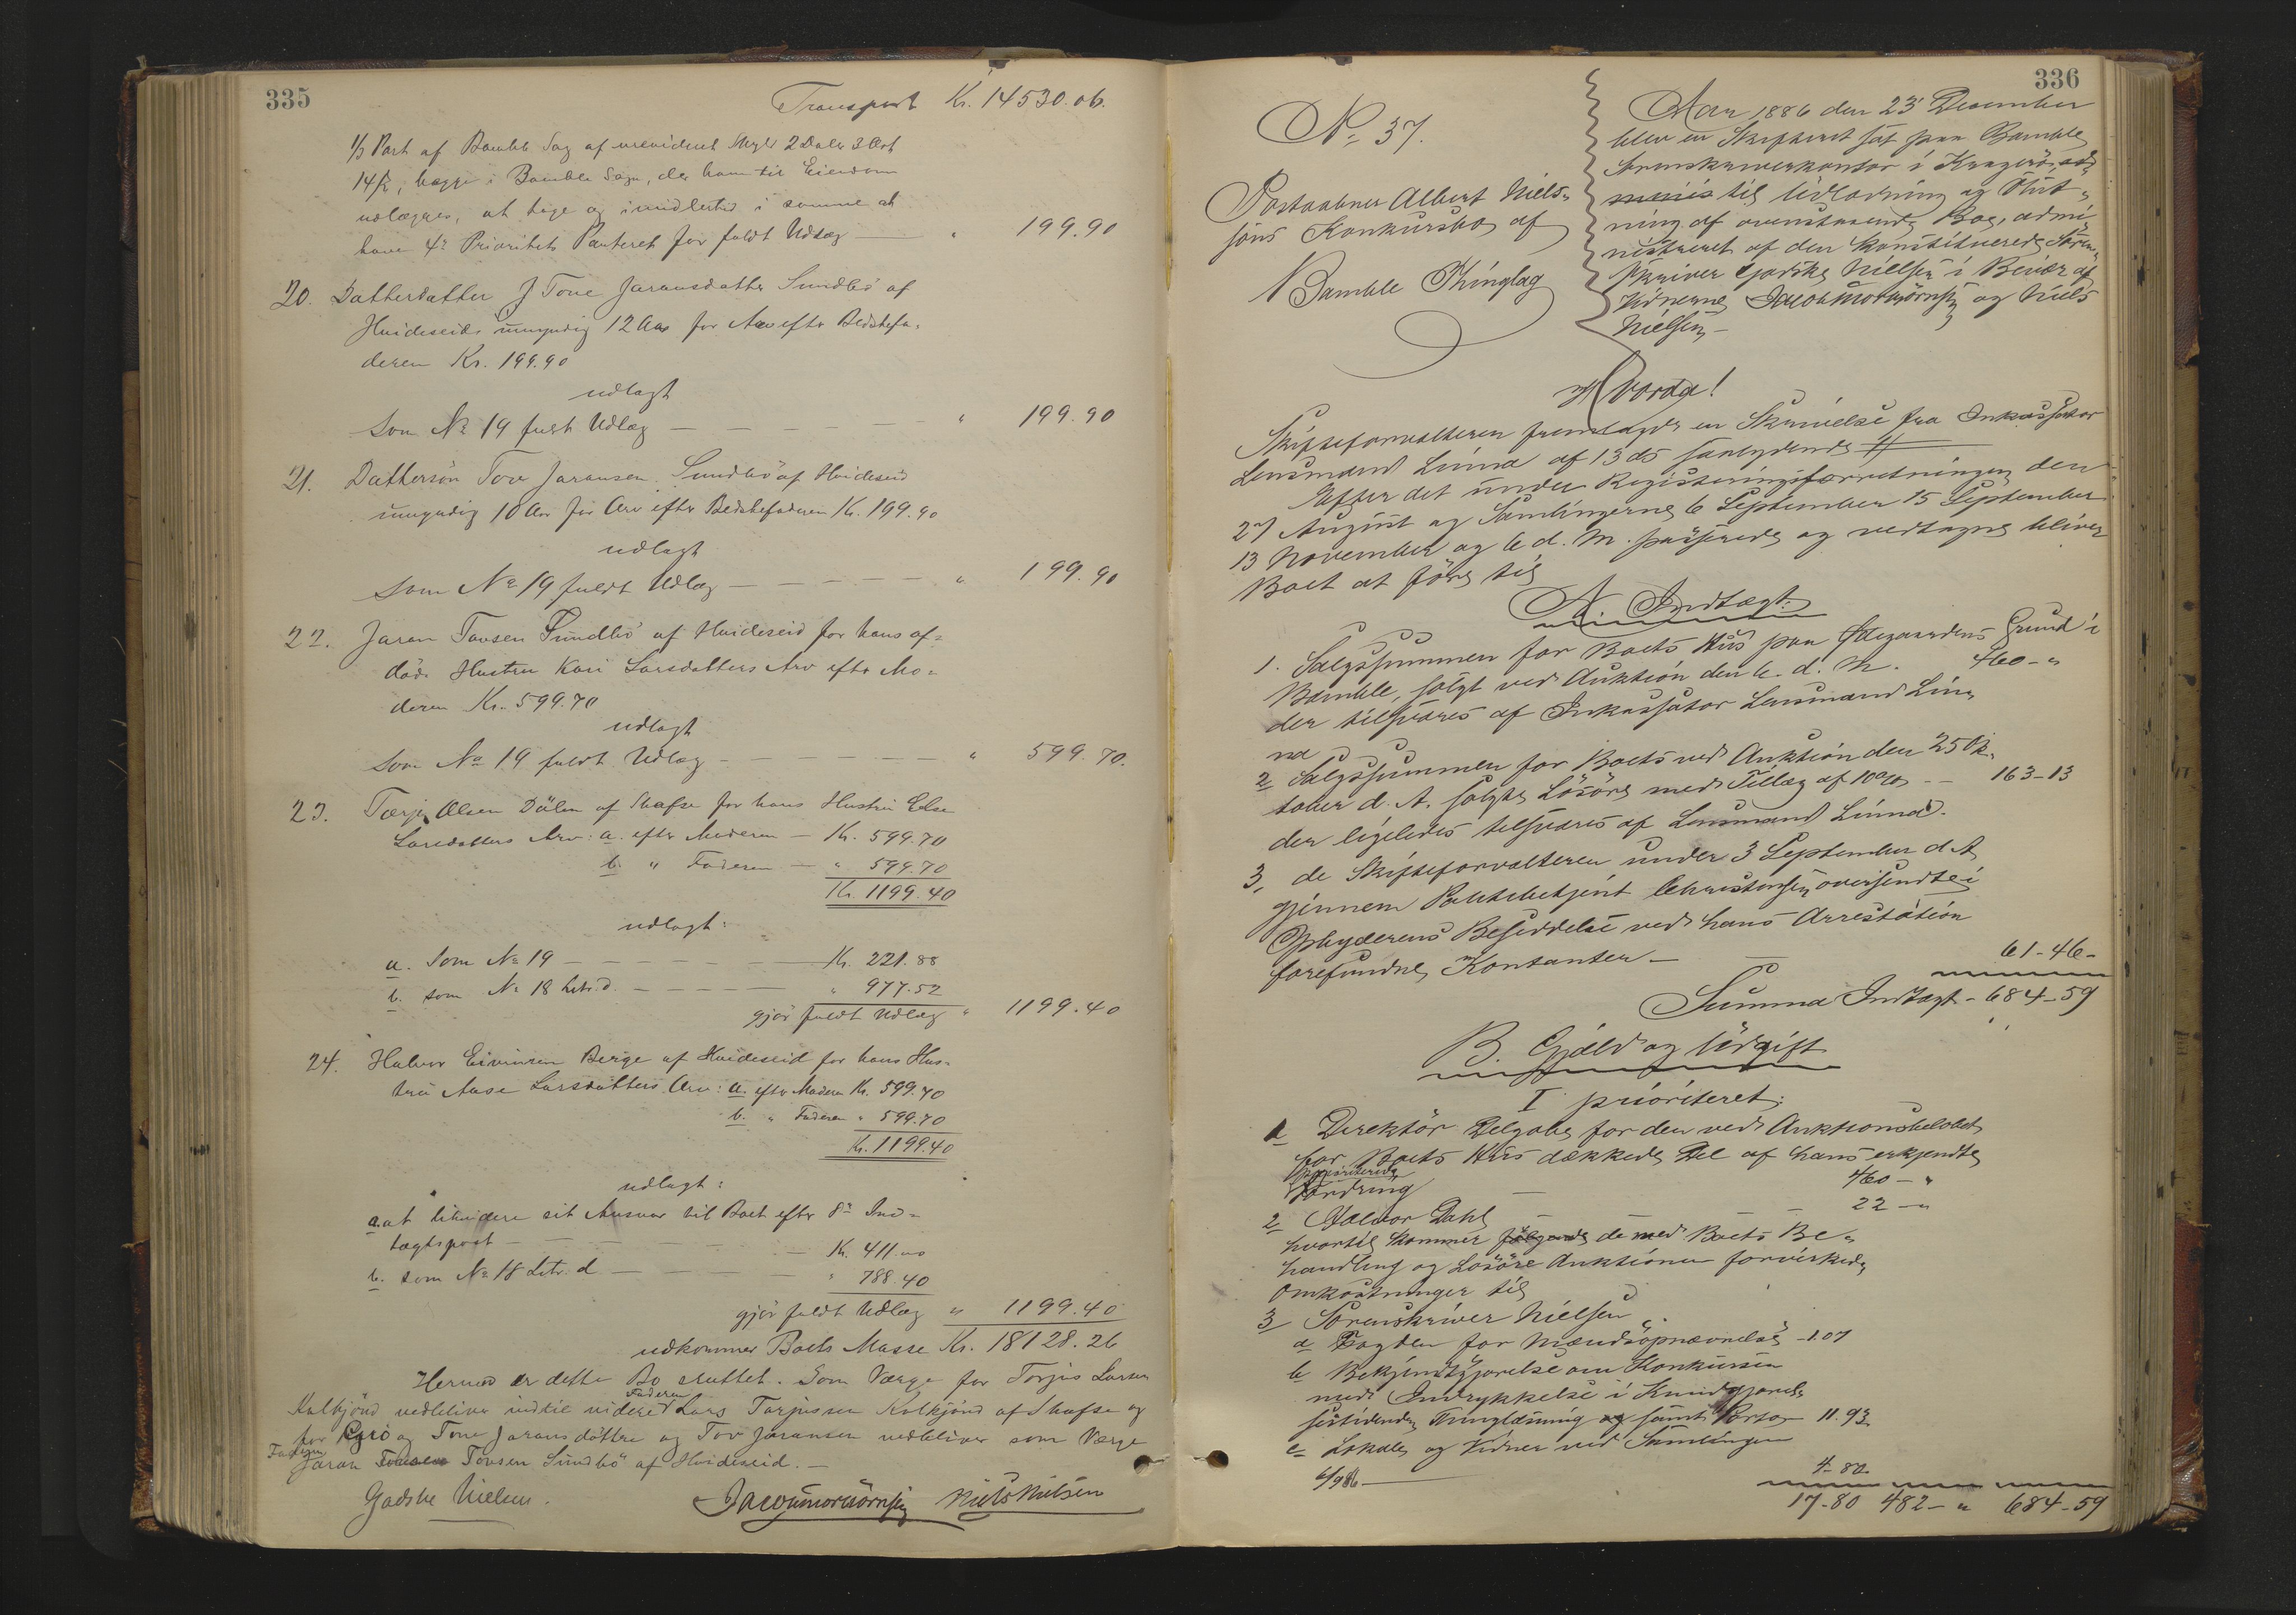 335
Transport Kr. 14530.06.
1/3 Part af Bamble Sag af urevideret Skyld 2 Daler 3 Ort
14 ß, begge i Bamble Sogn, der ham til Eiendom
udlægges, at tage og imidlertid i samme at
have 4de Prioritets Panteret for fuldt Udlæg — " 199.90
20. Datterdatter Tone Jaransdatter Sundbö af
Hvideseid umyndig 12 Aar for Arv efter Bedstefa-
deren Kr. 199.90
udlagt
som No 19 fuldt Udlæg — — — — — " 199.90
21. Dattersön Tov Jaransen Sundbö af Hvideseid
umyndig 10 Aar for Arv efter Bedstefaderen Kr. 199.90
udlagt
som No 19 fuldt Udlæg — — — — — " 199.90
22. Jaran Tovsen Sundbö af Hvideseid for hans af-
döde Hustru Kari Larsdatters Arv efter Mo-
deren Kr. 599.70
udlagt
som No 19 fuldt Udlæg — — — — — " 599.70.
23. Tarje Olsen Dalen af Skafse for hans Hustru Else
Larsdatters Arv: a. efter Moderen — Kr. 599.70
b. " Faderen — " 599.70
Kr. 1199.40
udlagt:
a. Som No 19 — — — — — Kr. 221.88
b. som No 18 Litr. d. — — — — " 977.52
gjör fuldt Udlæg " 1199.40
24. Halvor Eivindsen Berge af Hvideseid for hans Hus-
tru Aase Larsdatters Arv: a. efter Moderen Kr. 599.70
b. " Faderen " 599.70
Kr. 1199.40
udlagt:
a. at likvidere sit Ansvar til Boet efter 8de Ind-
tægtspost — — — — — Kr. 411.00
b. som No 18 Litr. d — — — — " 788.40
gjör fuldt Udlæg " 1199.40
udkommer Boets Masse Kr. 18128.26
Hermed er dette Bo sluttet. Som Værge for Torjus Larsen
Kolkjönd vedbliver indtil videre Faderen Lars Torjussen Kolkjönd af Skafse og
for Gyro og Tone Jaransdöttre og Tov Jaransen vedbliver som Værge
Faderen Jaran Tovsen Sundbö af Hvideseid. —
Godske Nielsen. Jacob Mortbjörnsen Niels Nielsen
336
No 37.
Postaabner Albert Niels-
sons Konkursbo af
Bamble Thinglag
Aar 1886 den 23 December
blev en Skifteret sat paa Bamble
Sorenskriverkontor i Kragerö
til Udlodning og Slut-
ning af ovenstaaende Bo, admi-
nistreret af den konstituerede Soren-
skriver Godske Nielsen i Beivær af
Vidnerne Jacob Mortbjörnsen og Niels
Nielsen —
Hvorda!
Skifteforvalteren fremlagde en Skrivelse fra Inkassator
Lensmand Linna af 13 ds saalydende #
Efter det under Registeringsforretningen den
27 August og Samlingerne 6 September 15 September
13 November og 6 d. M. passerede og vedtagne bliver
Boet at före til
A. Indtægt:
1. Salgssummen for Boets Hus paa Grund i
Bamble, solgt ved Auktion den 6. d. M. 460 - "
der tilsvares af Inkassator Lensmand Lin-
na
2 Salgssummen for Boets ved Auktion den 25 Ok-
tober d. A. solgte Lösöre med Tillæg af 10% — 163-13
der ligeledes tilsvares af Lensmand Linna.
3, de Skifteforvalteren under 3 September d. A.
gjennem Politibetjent Christensen oversendte i
Opbyderens Besiddelse ved hans Arrestation
forefundne Kontanter — — 61-46-
Summa Indtægt - 684-59
B. Gjæld og Udgift
I prioriteret:
1 Direktör for den ved Auktionsbelöbet
for Boets Hus dækkede Del af hans erkjendte
prioriterede
Fordring — 460 — "
2 Halvor Dahl — — — 22 — "
hvortil kommer fölgende de med Boets Be-
handling og Lösöre Auktionen forvirkede
Omkostninger til
3 Sorenskriver Nielsen
a Fogden for Mændsopnævnelse - 1.07
b Bekjendtgjörelse om Konkursen
med Indrykkelse i Kundgjörel-
sestidende, Thinglæsning og samt Porto - 11.93
c Lokale og Vidner ved Samlingen
6/9 86 — 4-80
17-80 482- " 684-59